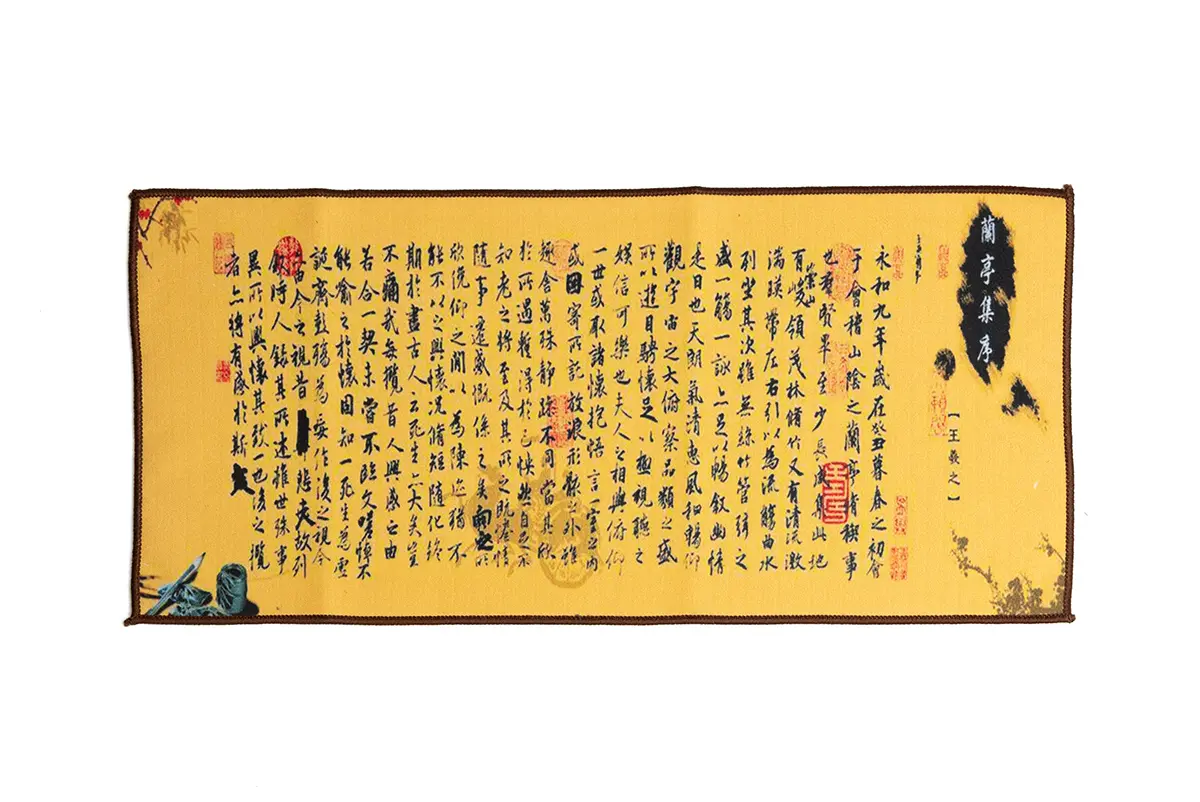 蘭亭集序
【王羲之】
永和九年歲在癸丑暮春之初會
于會稽山陰之蘭亭脩稧事
也羣賢畢至少長咸集此地
有崇山峻領茂林脩竹又有清流激
湍暎帶左右引以為流觴曲水
列坐其次雖無絲竹管弦之
盛一觴一詠亦足以暢敘幽情
是日也天朗氣清惠風和暢仰
觀宇宙之大俯察品類之盛
所以遊目騁懷足以極視聽之
娛信可樂也夫人之相與俯仰
一世或取諸懷抱悟言一室之內
或因寄所託放浪形骸之外雖
趣舍萬殊靜躁不同當其欣
於所遇暫得於己怏然自足不
知老之將至及其所之既惓情
隨事遷感慨係之矣向之所
欣俛仰之間以為陳迹猶不
能不以之興懷況脩短隨化終
期於盡古人云死生亦大矣豈
不痛哉每攬昔人興感之由
若合一契未嘗不臨文嗟悼不
能喻之於懷固知一死生為虛
誕齊彭殤為妄作後之視今
由今之視昔悲夫故列
敘時人錄其所述雖世殊事
異所以興懷其致一也後之攬
者亦將有感於斯文